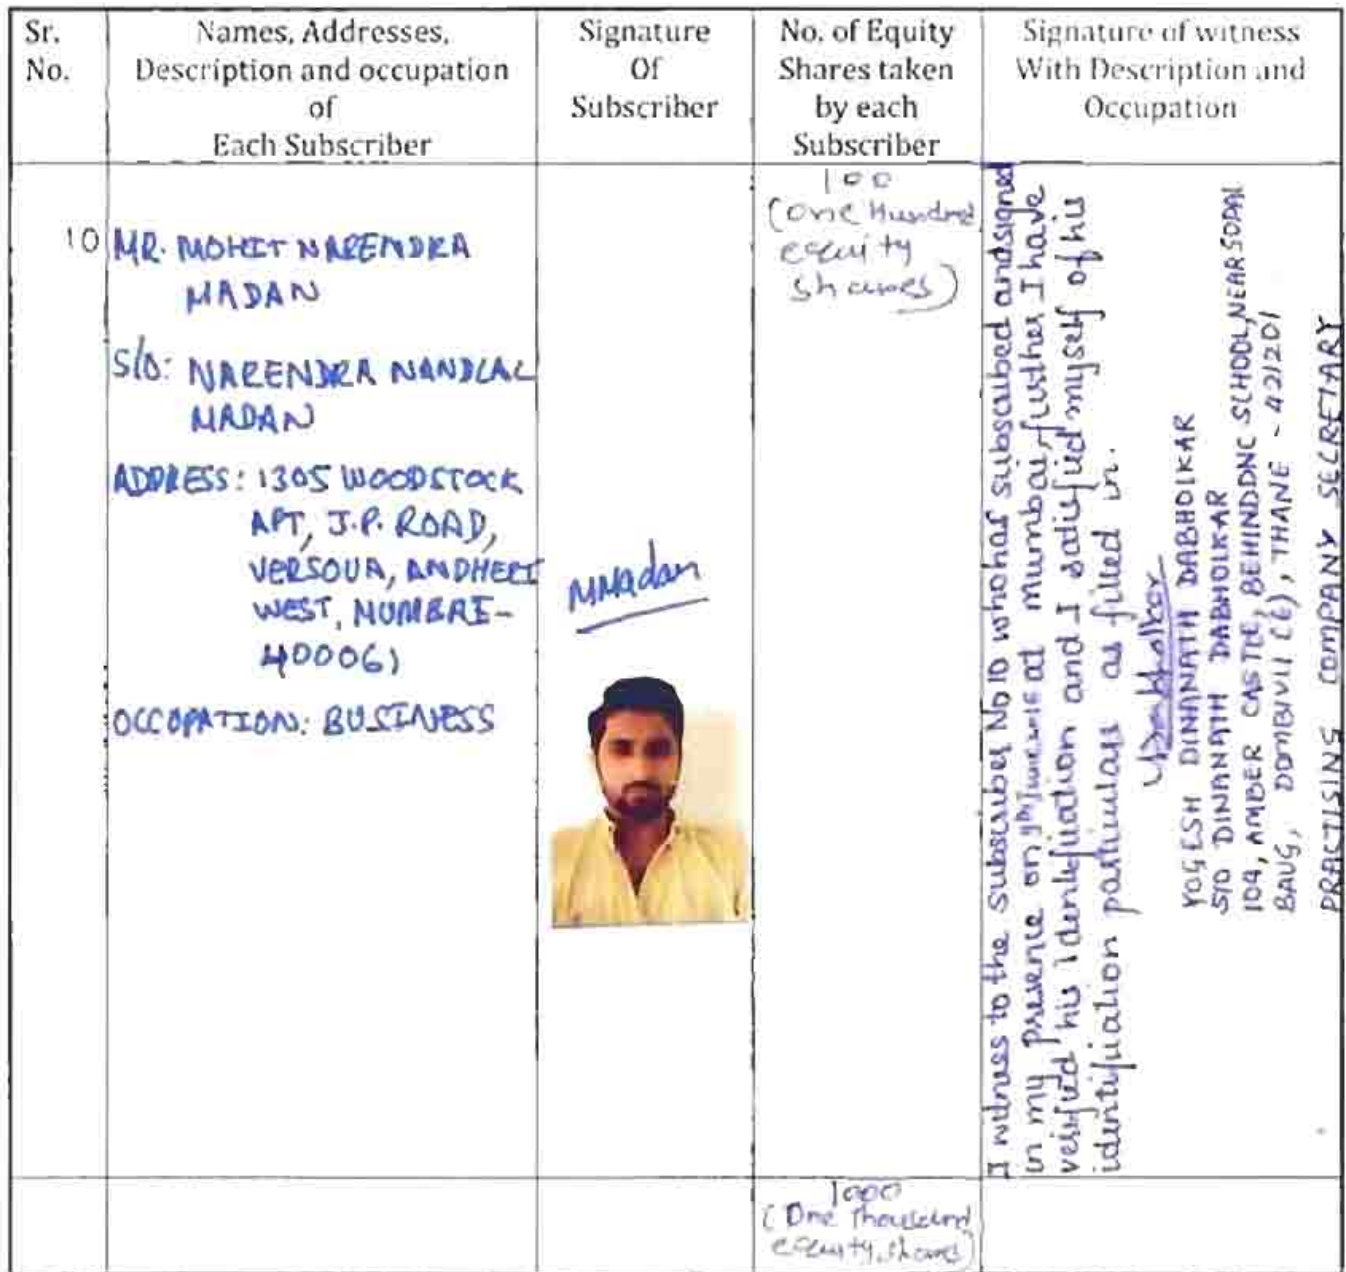 Sr.
No.
Names, Addresses,
Description and occupation
of
Each Subscriber
Signature
Of
Subscriber
No. of Equity
Shares taken
by each
Subscriber
Signature of witness
With Description and
Occupation
10
MR. MOHIT NARENDRA
MADAN
S/O: NARENDRA NANDLAL
MADAN
ADDRESS: 1305 WOODSTOCK
APT, J.P. ROAD,
VERSOVA, ANDHERI
WEST, MUMBAI-
400061
OCCOPATION: BUSINESS
MMadan
100
(One Hundred
equity
shares)
I witness to the subscriber No 10 who has subscribed and signed
in my presence on at Mumbai, further I have
verified his identification and I satisfied myself of his
identification particulars as filled in.
Dabholkar
YOGESH DINANATH DABHOLKAR
S/O DINANATH DABHOLKAR
104, AMBER CASTLE, BEHIND DNC SCHOOL, NEAR SODAI
BAUG, DOMBIVLI (E), THANE - 421201
PRACTISING COMPANY SECRETARY
1000
(One Thousand
equity shares)